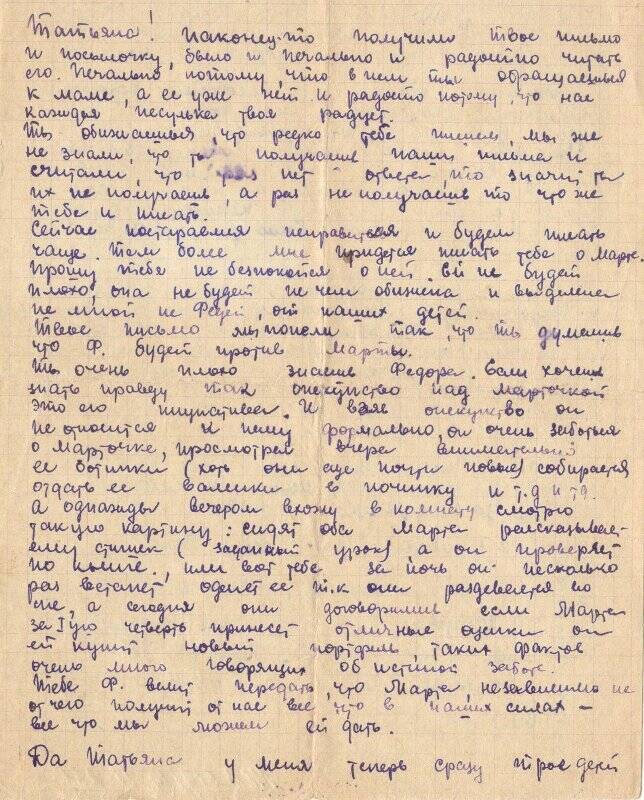 Татьяна! Наконец-то получили твое письмо
и посылочку, было и печально и радостно читать
его. Печально потому, что в нем ты обращаешься
к маме, а ее уже нет и радосто потому, что нас
каждая весулька твоя радует.
Ты обижаешься, что редко тебе пишем, мы же
не знали, что ты получаешь наши письма и
считали, что раз нет ответа, то значит ты
их не получаешь, а раз не получаешь то что же
тебе и писать.
Сейчас постараемся исправиться и будем писать
чаще. Тем более мне придется писать тебе о Марте.
Прошу тебя не безпокойся о ней. Ей не будет
плохо, она не будет не чем обижена и выделена
не мной не Федей, от наших детей.
Твое письмо мы поняли так, что ты думаешь
что Ф. будет против Марты.
Ты очень плохо знаешь Федора. Если хочешь
знать правду так опекунство над Марточкой
это его инициатива. И взяв опекунство он
не относится к нему формально, он очень заботься
о Марточке, просмотрел вчера внимательно
ее ботинки (хоть они еще почти новые) собирается
отдать ее валенки в починку и т.д и тд.
а однажды вечером вхожу в комнату смотрю
такую картину: сидят оба Марта рассказывает
ему стишек (заданный урок) а он проверяет
по книге, или вот тебе за ночь он несколько
раз встанет оденет ее т.к она раздевается во
сне, а сегодня они договорились если Марта
за Iую четверть принесет отличные оценки он
ей купит новый портфель, таких фактов
очень много говорящих об истиной заботе.
Тебе Ф. велит передать, что Марта, независимо не
от чего получит от нас все что в наших силах –
все что мы можем ей дать.
Да Татьяна у меня теперь сразу трое детей